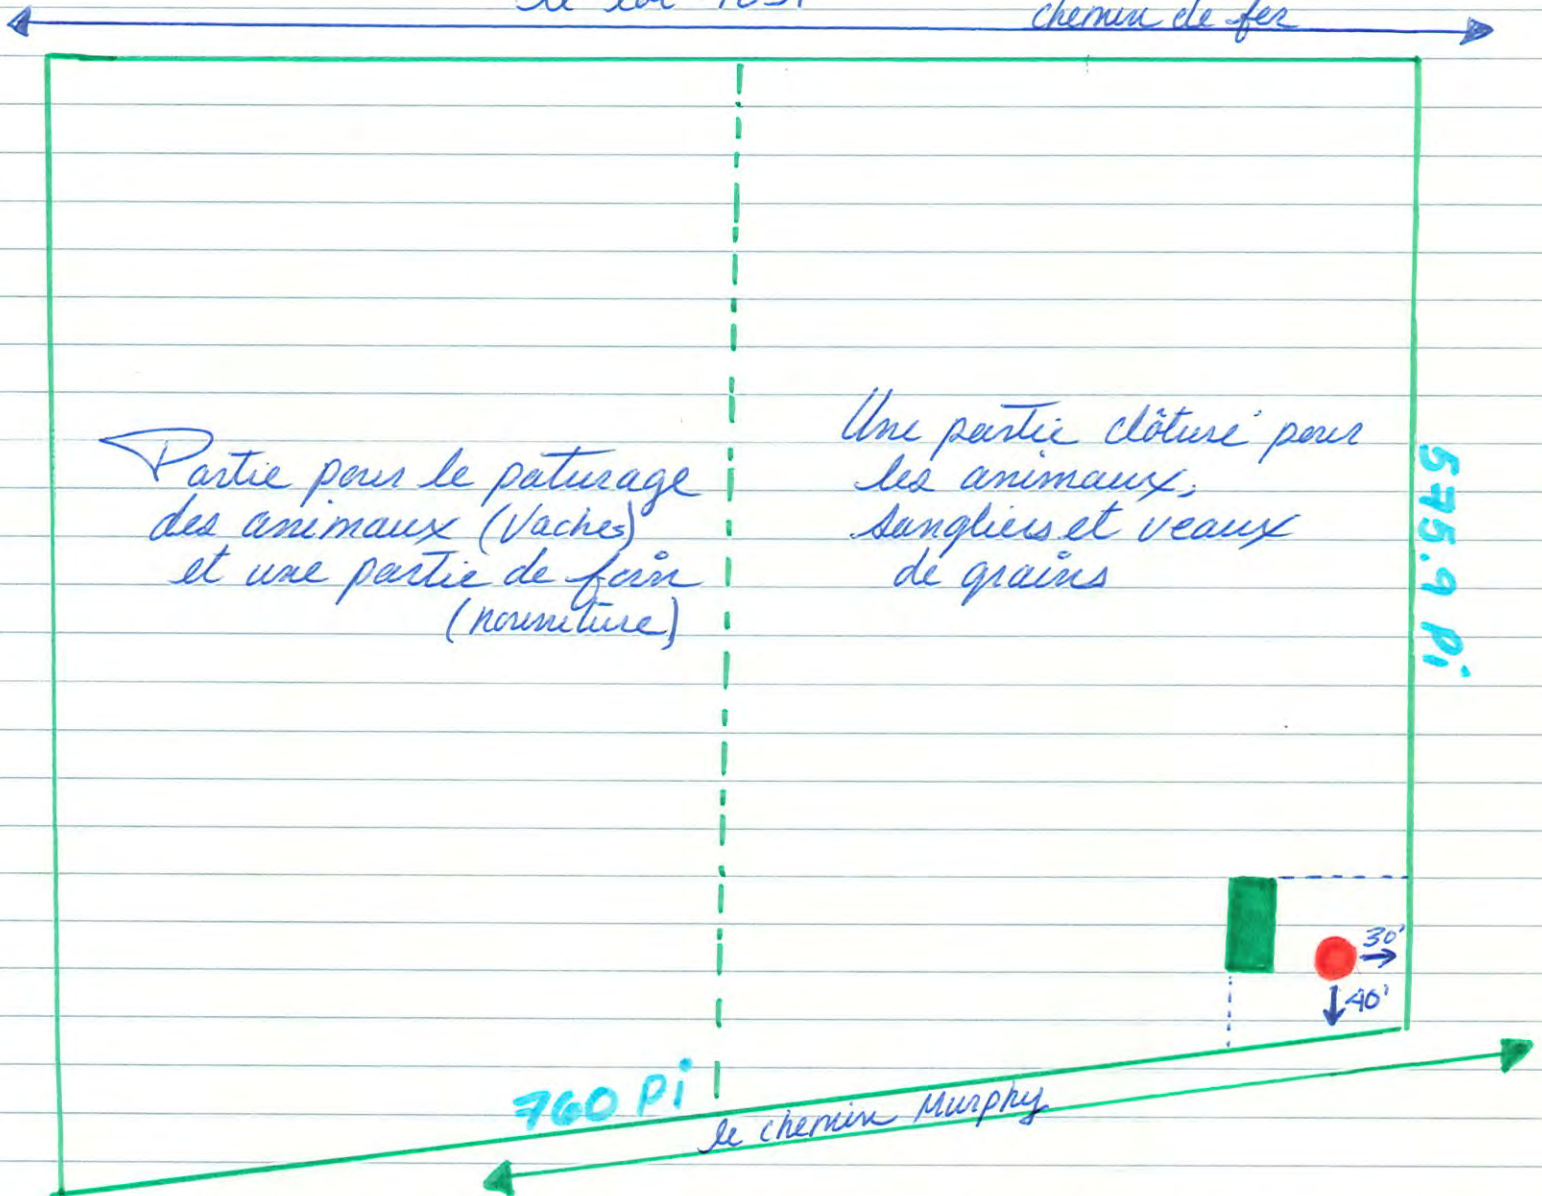 chemin de fer
Partie pour le paturage
des animaux (Vaches)
et une partie de foin
(nourriture)
Une partie clôturé pour
les animaux,
sangliers et veaux
de grains
575.9 Pi
30'
40'
760 Pi
le chemin Murphy